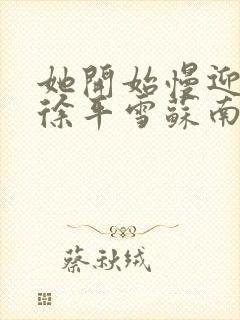 她開始慢迎
徐平雪蘇南
蔡秋绒